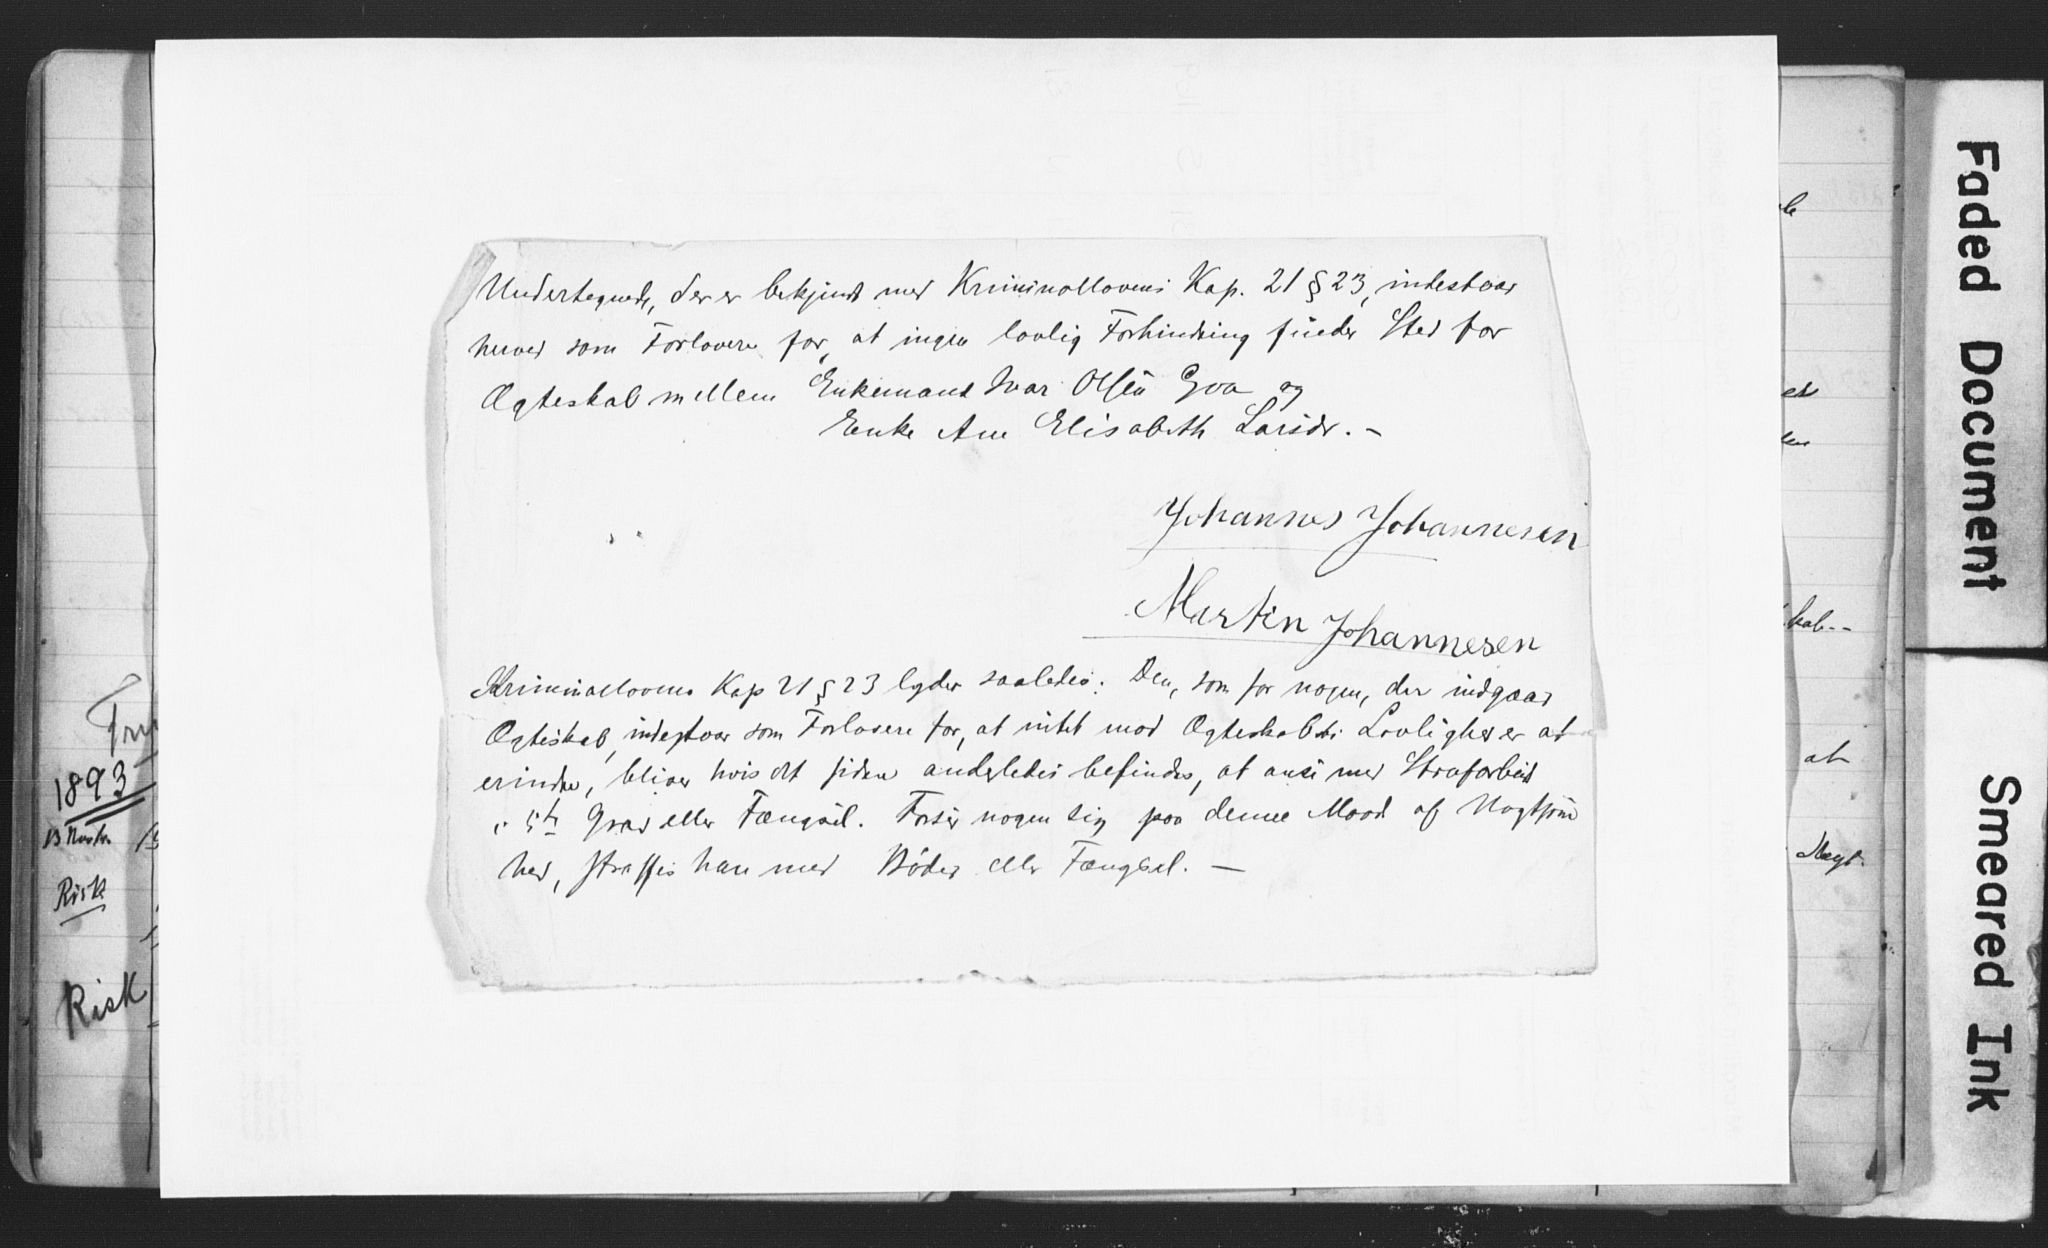 Undertegnede, der er bekjendt med Kriminallovens Kap. 21 § 23, indestaar
herved som Forlovere for, at ingen lovlig Forhindring finder Sted for
Ægteskab mellem Enkemand Ivar Olsen Goa og
Enke Ane Elisabeth Larsdr. -
Johannes Johannesen
Martin Johannesen
Kriminallovens Kap 21 § 23 lyder saaledes: Den, som for nogen, der indgaar
Ægteskab, indestaar som Forlovere for, at intet mod Ægteskabets Lovlighed er at
erindre, bliver hvis det siden anderledes befindes, at ansé med Strafarbeid
i 5te Grad eller Fængsel. Forsér nogen sig paa denne Maade af Uagtsom
hed, straffes han med Bøder eller Fængsel. -
1893
Risk
Risk
et
kab--
at
Faded Document
Smeared Ink